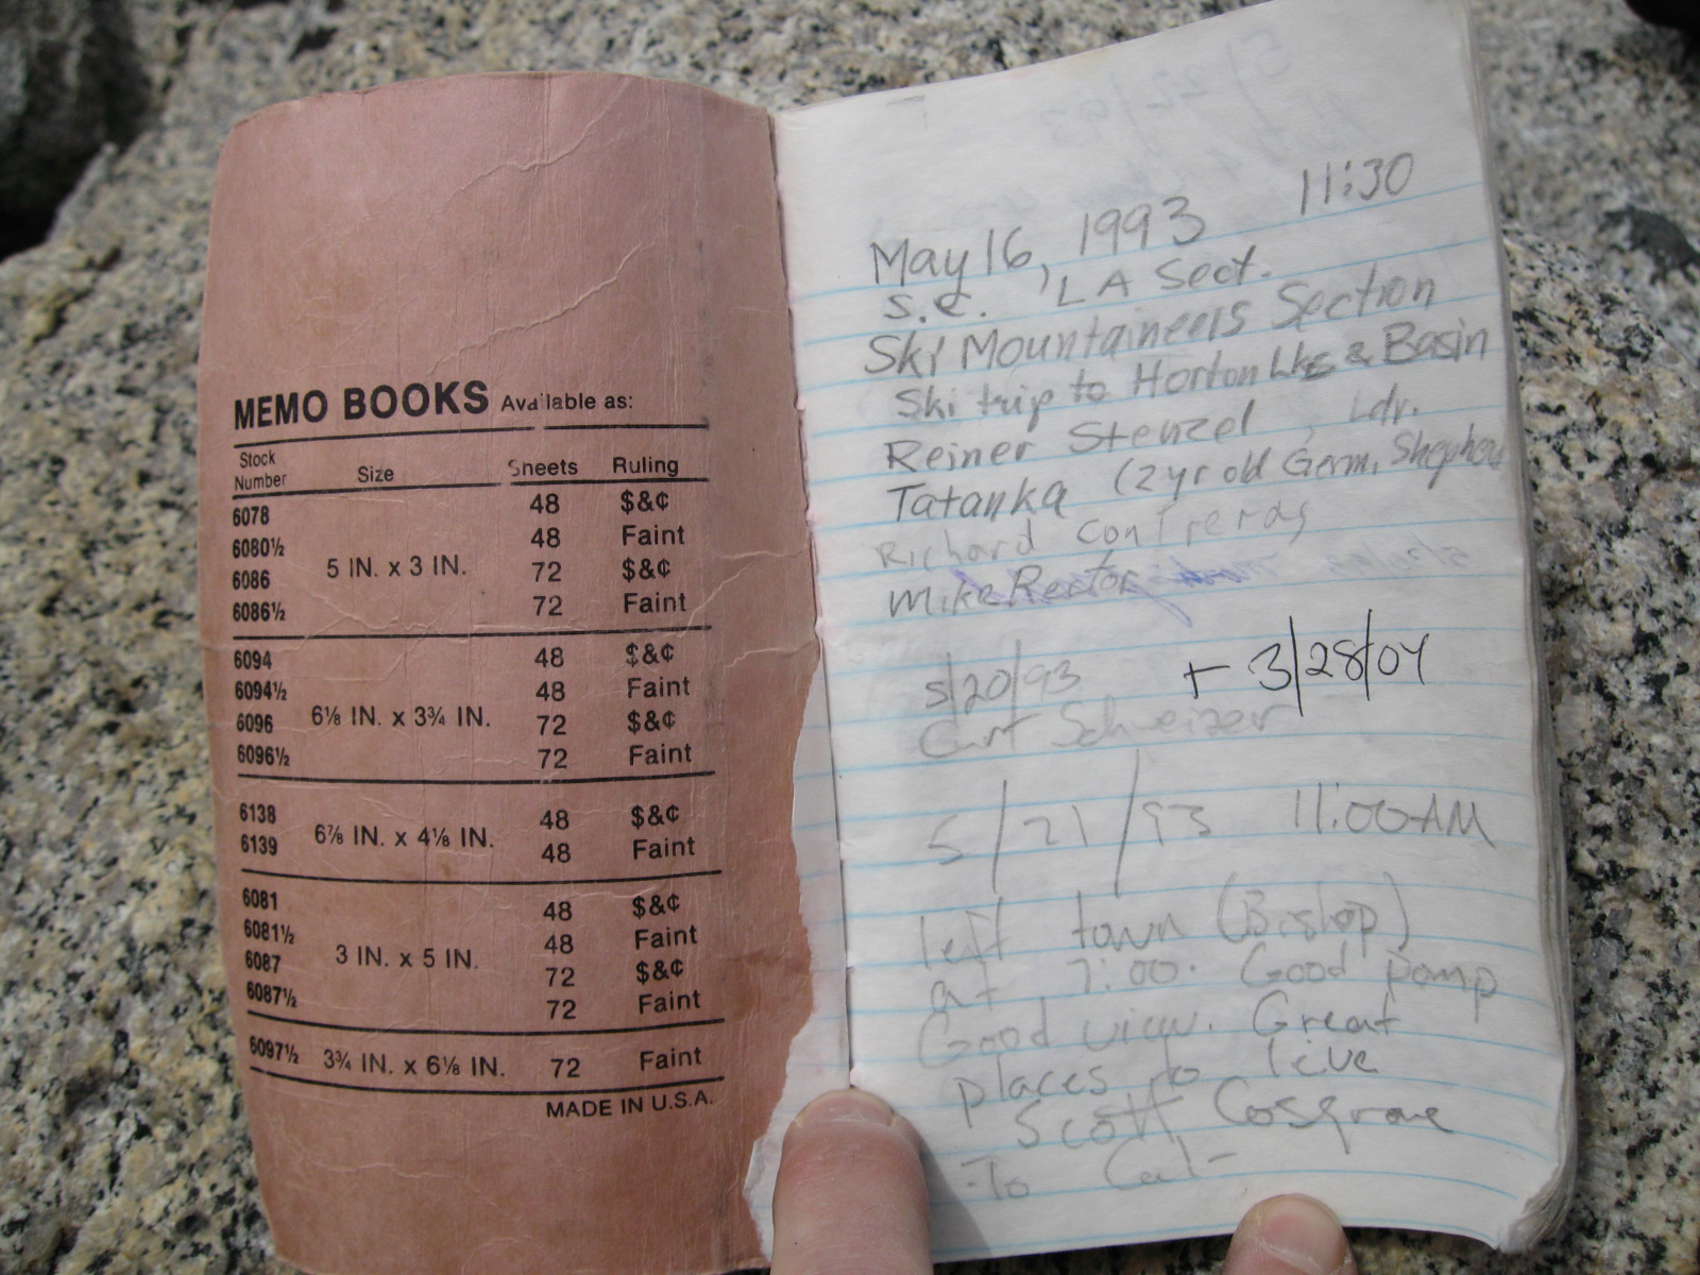 MEMO BOOKS Available as:
Stock Number Size Sheets Ruling
6078 48 $&¢
6080½ 48 Faint
5 IN. x 3 IN.
6086 72 $&¢
6086½ 72 Faint
6094 48 $&¢
6094½ 48 Faint
6⅛ IN. x 3¾ IN.
6096 72 $&¢
6096½ 72 Faint
6138 48 $&¢
6⅞ IN. x 4⅛ IN.
6139 48 Faint
6081 48 $&¢
6081½ 48 Faint
3 IN. x 5 IN.
6087 72 $&¢
6087½ 72 Faint
6097½ 3¾ IN. x 6⅛ IN. 72 Faint
MADE IN U.S.A.
May 16, 1993 11:30
S.C., LA Sect.
Ski Mountaineers Section
Ski trip to Horton Lks & Basin
Reiner Stenzel, Ldr.
Tatanka (2 yr old Germ. Shepherd
Richard Contreras
Mike Rector
5/20/93 + 3/28/04
Curt Schweizer
5/21/93 11:00 AM
left town (Bishop)
at 7:00. Good pomp
Good view. Great
places to live
Scott Cosgrove
-To Cal-